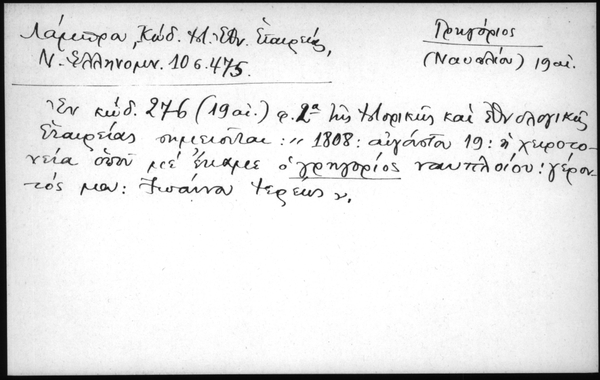 Λάμπρου, Κώδ. Ἱστ. Ἐθν. Ἑταιρείας,
Ν. Ἑλληνομν. 10 σ. 475.
Γρηγόριος
(Ναυπλίου) 19 αἰ.
Ἐν κώδ. 276 (19 αἰ.) φ. 2α τῆς Ἱστορικῆς καὶ Ἐθνολογικῆς
Ἑταιρείας σημειοῦται: „ 1808: αὐγούστου 19: ἡ χειροτο-
νεία ὁποῦ μέ ἔκαμε ὁ γρηγόριος ναυπλοίου: γέρον-
τός μου: Ἰωάννου ἱερέως ".